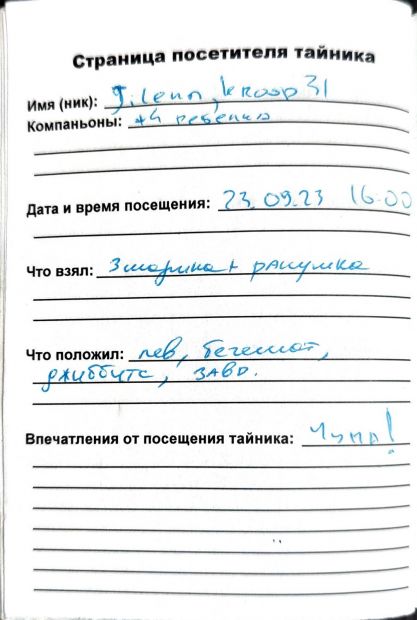 Страница посетителя тайника
Имя (ник): kroop31
Компаньоны: +4 ребенка
Дата и время посещения: 23.09.23 16.00
Что взял: 3 шарика + ракушка
Что положил: лев, бегемот,
джиббитс,
Впечатления от посещения тайника: